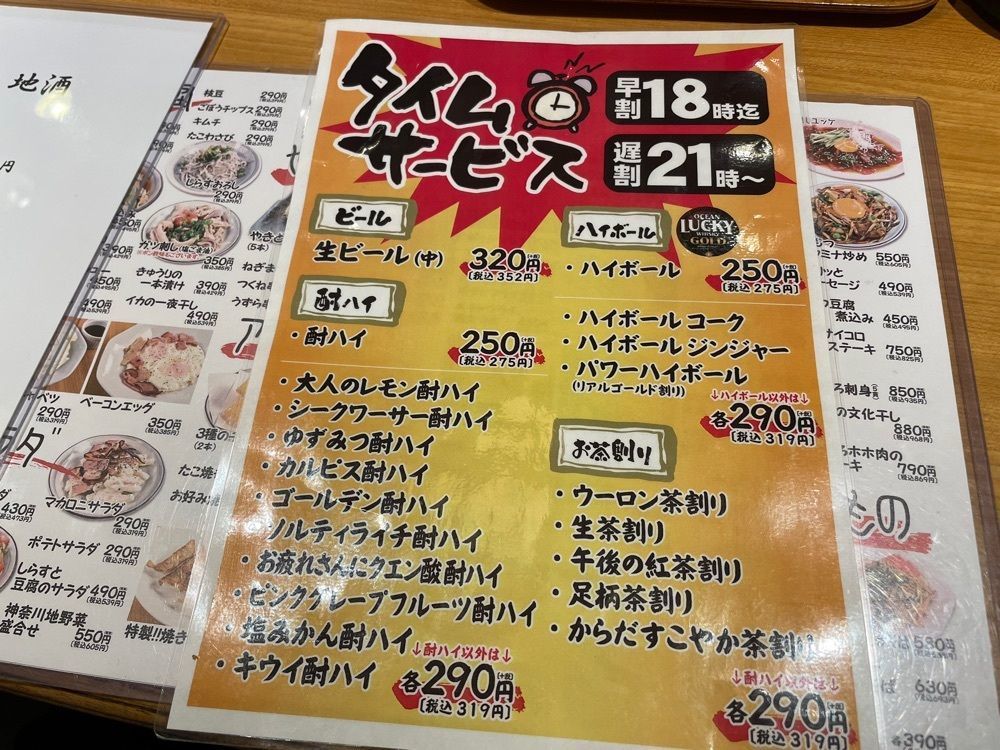 地酒
円
枝豆
290円
(税込319円)
ごぼうチップス 290円
(税込319円)
キムチ
290円
(税込319円)
たこわさび
290円
(税込319円)
しらすおろし
290円
(税込319円)
ガツ刺し(塩ごま油)
350円
(税込385円)
きゅうりの
一本漬け
390円
(税込429円)
イカの一夜干し
490円
(税込539円)
やきと
(5本)
ねぎま
つくね串
うずら串
ベーコンエッグ
350円
(税込385円)
マカロニサラダ
290円
(税込319円)
430円
(税込473円)
ポテトサラダ
290円
(税込319円)
しらすと
豆腐のサラダ
490円
(税込539円)
神奈川地野菜
盛合せ
550円
(税込605円)
3種の
(2本)
たこ焼き
お好み焼
特製!!焼き
タイム
サービス
早割 18時迄
遅割 21時〜
ビール
生ビール(中)
320円(+税)
〔税込 352円〕
酎ハイ
・酎ハイ
250円(+税)
〔税込 275円〕
・大人のレモン酎ハイ
・シークワーサー酎ハイ
・ゆずみつ酎ハイ
・カルピス酎ハイ
・ゴールデン酎ハイ
・ソルティライチ酎ハイ
・お疲れさんにクエン酸酎ハイ
・ピンクグレープフルーツ酎ハイ
・塩みかん酎ハイ
・キウイ酎ハイ
↓酎ハイ以外は↓
各290円(+税)
〔税込 319円〕
ハイボール
OCEAN
LUCKY
WHISKY
GOLD
・ハイボール
250円(+税)
〔税込 275円〕
・ハイボール コーク
・ハイボール ジンジャー
・パワーハイボール
(リアルゴールド割り)
↓ハイボール以外は↓
各290円(+税)
〔税込 319円〕
お茶割り
・ウーロン茶割り
・生茶割り
・午後の紅茶割り
・足柄茶割り
・からだすこやか茶割り
↓酎ハイ以外は↓
各290円(+税)
〔税込 319円〕
ユッケ
ミナ炒め
550円
(税込605円)
セージ
490円
(税込539円)
豆腐
煮込み
450円
(税込495円)
サイコロ
ステーキ
750円
(税込825円)
刺身
850円
(税込935円)
の文化干し
880円
(税込968円)
ホホ肉の
790円
(税込869円)
もの
530円
630円
(税込693円)
各390円